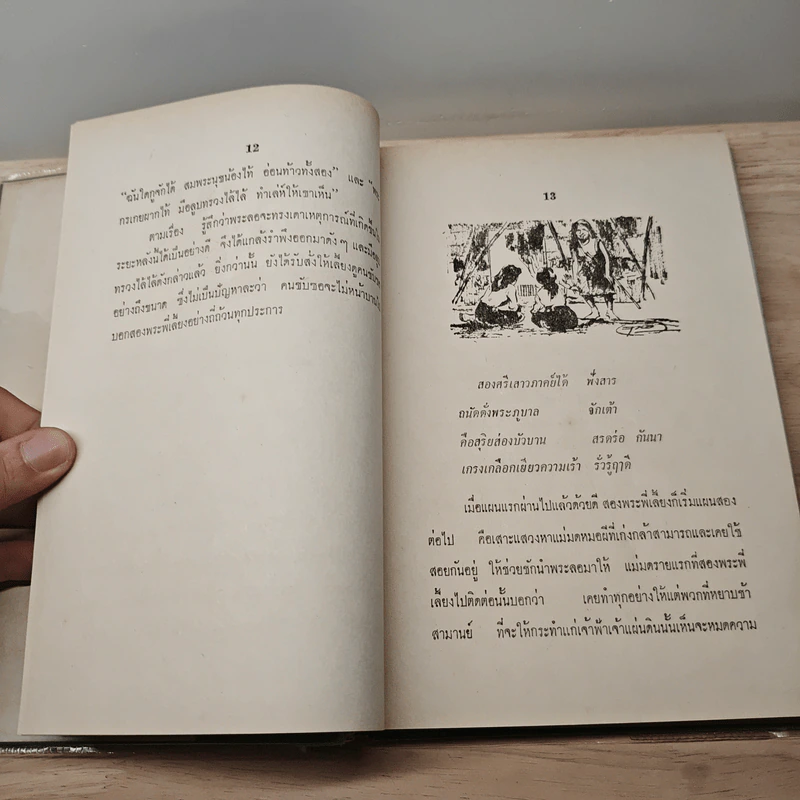 12
"ฉันใดกูจักได้ สมพระนุชน้องไท้ อ่อนท้าวทั้งสอง" และ
กรเกยผากไท้ มือลูบทรวงไล้ไล้ ทำเล่ห์ให้เขาเห็น"
ตามเรื่อง รู้สึกว่าพระลอจะทรงเดาเหตุการณ์ที่เกิดขึ้น
ระยะหลังนี้ได้เป็นอย่างดี จึงได้แกล้งรำพึงออกมาดังๆ และมือ
ทรวงไล้ไล้ดังกล่าวแล้ว ยิ่งกว่านั้น ยังได้รับสั่งให้เลี้ยงดูคนขับ
อย่างถึงขนาด ซึ่งไม่เป็นปัญหาละว่า คนขับซอจะไม่หน้าบาน
บอกสองพระพี่เลี้ยงอย่างถี่ถ้วนทุกประการ
13
สองศรีเสาวภาคย์ได้ ฟังสาร
ถนัดดั่งพระภูบาล จักเต้า
คือสุริยส่องบัวบาน สรดร่อ กันนา
เกรงเกลือกเยียวความเร้า รั่วรู้ฤๅดี
เมื่อแผนแรกผ่านไปแล้วด้วยดี สองพระพี่เลี้ยงก็เริ่มแผนสอง
ต่อไป คือเสาะแสวงหาแม่มดหมอผีที่เก่งกล้าสามารถและเคยใช้
สอยกันอยู่ ให้ช่วยชักนำพระลอมาให้ แม่มดรายแรกที่สองพระพี่
เลี้ยงไปติดต่อนั้นบอกว่า เคยทำทุกอย่างให้แต่พวกที่หยาบช้า
สามานย์ ที่จะให้กระทำแก่เจ้าฟ้าเจ้าแผ่นดินนั้นเห็นจะหมดความ